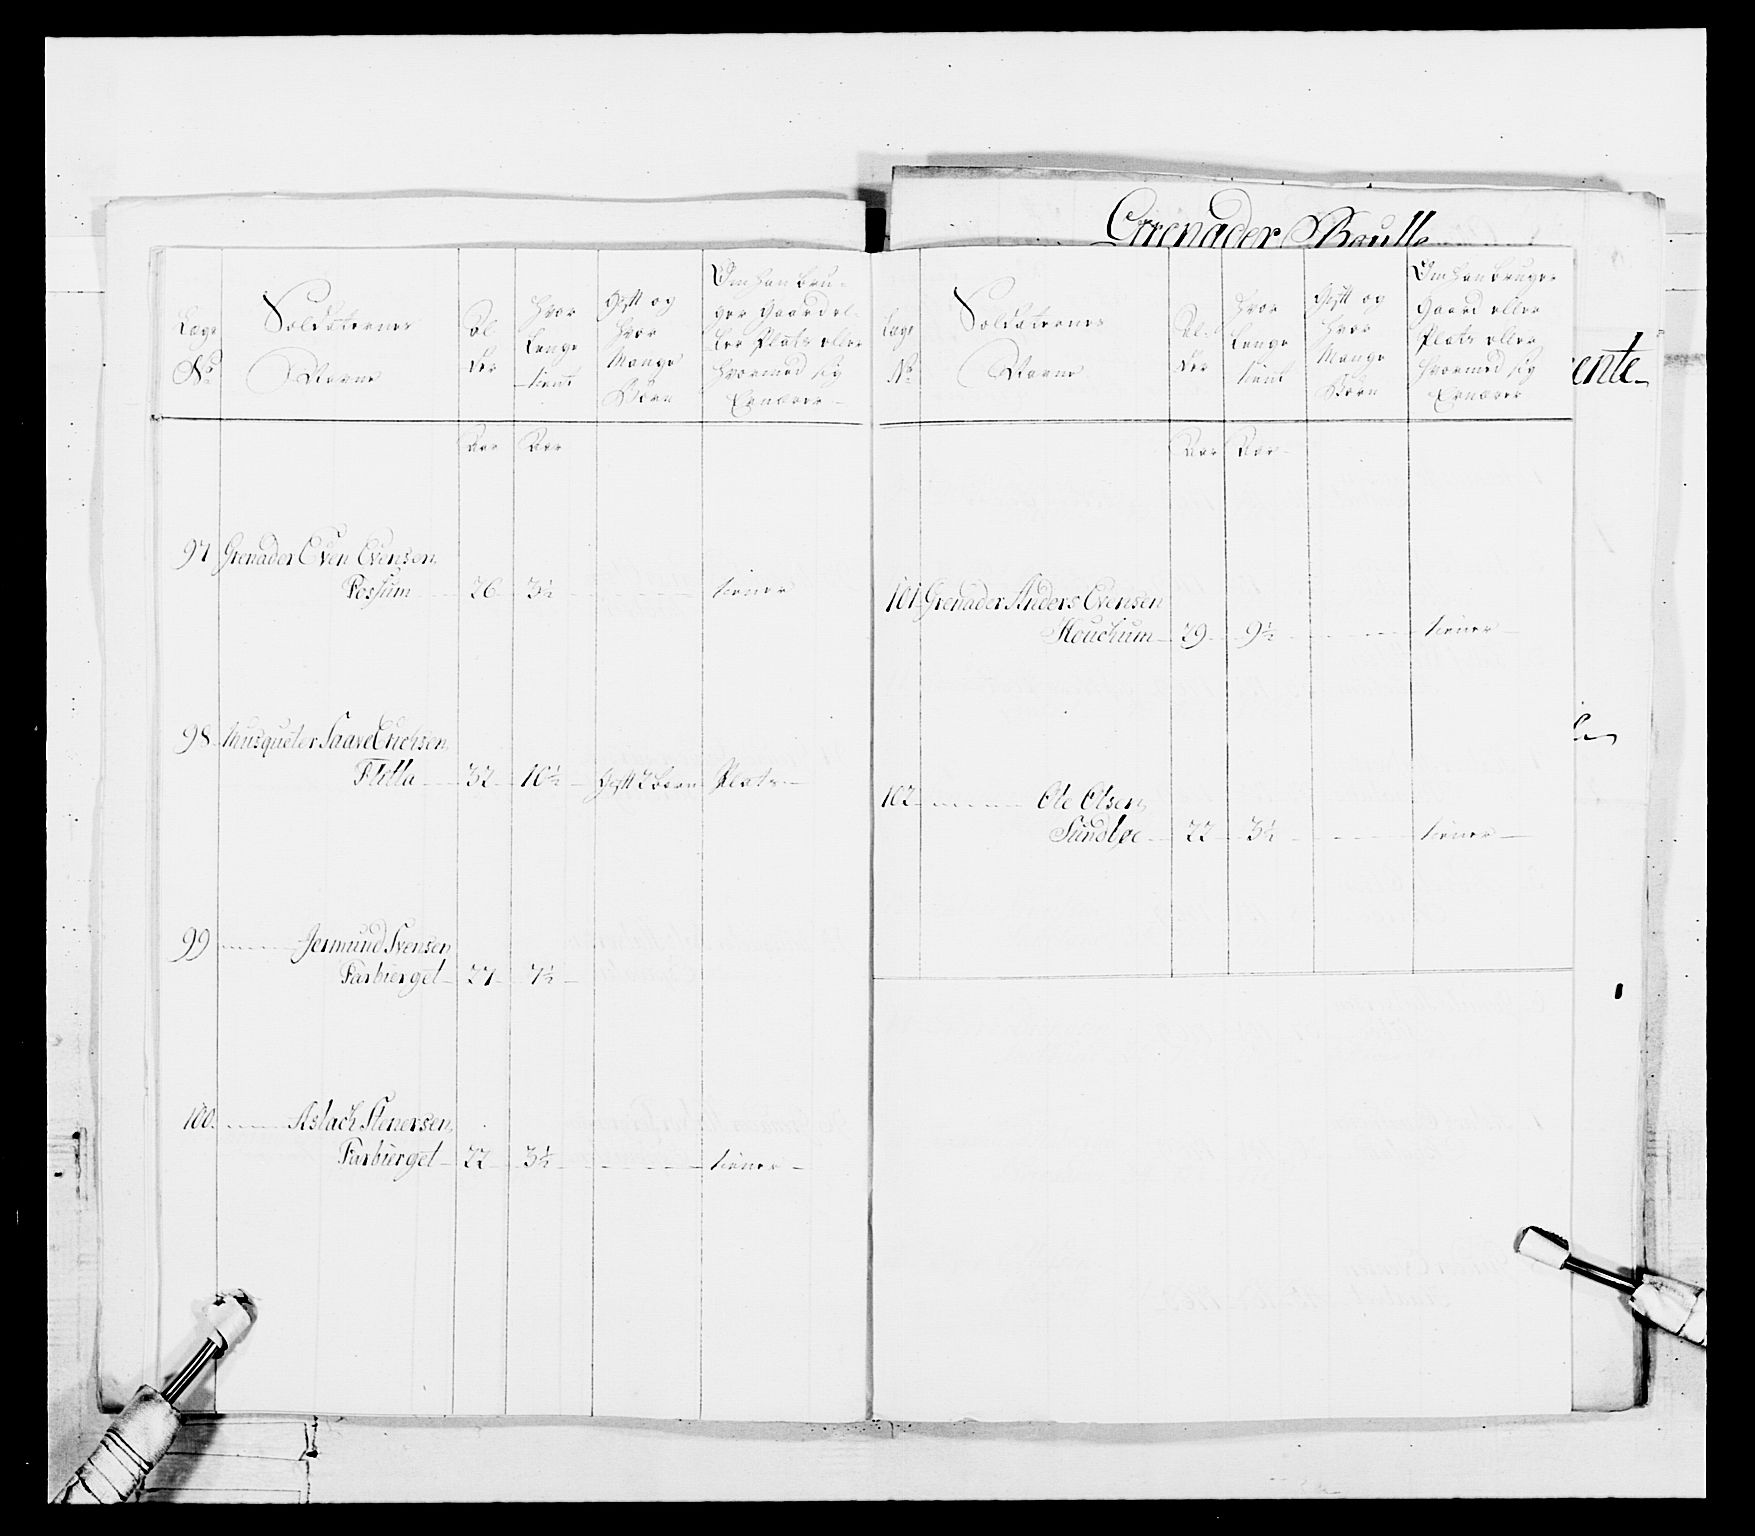 Grenader Roulle
Lægs No | Soldaternes Navne | Al der | Hvor Længe tient | Gift og Hvor Mange Børn | Om han bru- ger Gaard el- ler Plats eller Hvormed sig Ernærer
Aar | Aar
97 Grenader Even Evensen
Fossum 26 3½ tiener
98 Musqueter Saave Erichsen
Fletta 32 10½ Gift 2 børn Plats
99 Jermund Svensen
Farbierget 27 7½
100. Aslach Stenersen
Farbierget 22 3½ tiener
Lægs No | Soldaternes Navne | Al- der | Hvor Længe tient | Gift og Hvor Mange Børn | Om han bruger Gaard eller Plats eller Hvormed sig Ernærer
Aar | Aar
101 Grenader Anders Evensen
Houchum 29 9½ tiener
102 Ole Olsen
Sundbøe 22 3½ tiener
ente